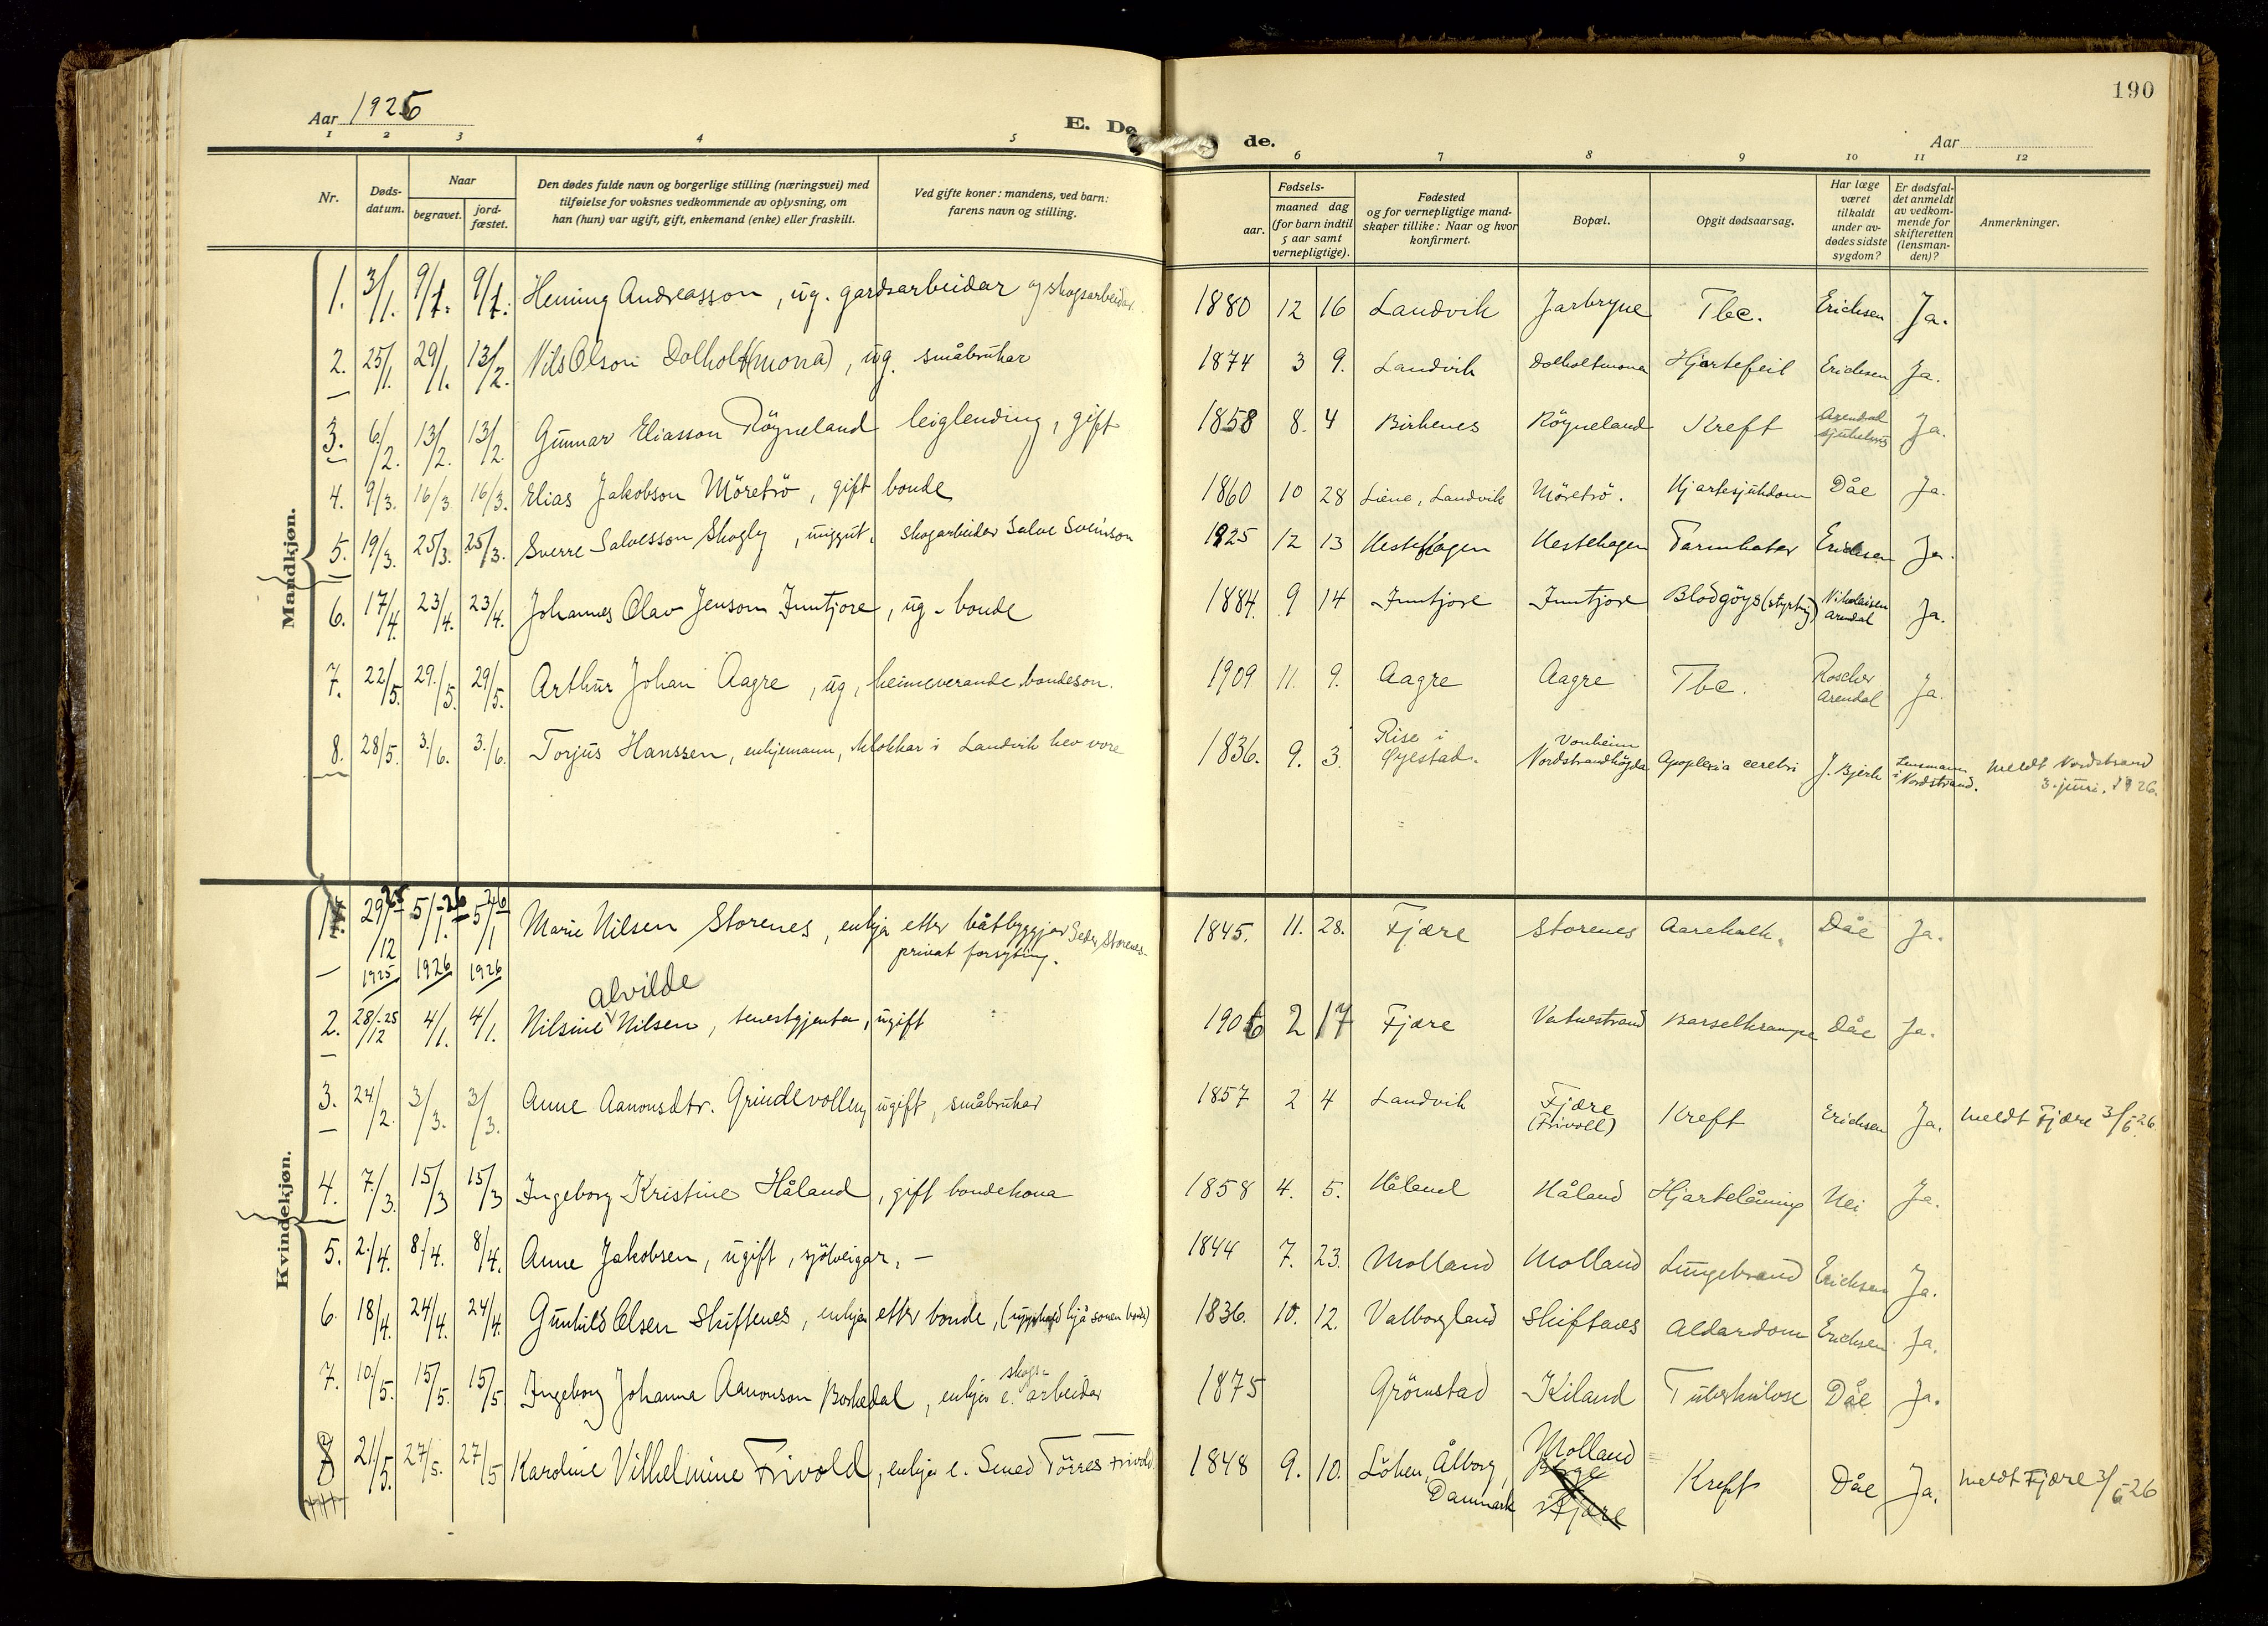 190
Aar 1926
E. Dø
de.
Aar
1 2 3 4 5 6 7 8 9 10 11 12
Nr.
Døds-
datum.
Naar
begravet.
jord-
fæstet.
Den dødes fulde navn og borgerlige stilling (næringsvei) med
tilføielse for voksnes vedkommende av oplysning, om
han (hun) var ugift, gift, enkemand (enke) eller fraskilt.
Ved gifte koner: mandens, ved barn:
farens navn og stilling.
Fødsels-
aar.
maaned dag
(for barn indtil
5 aar samt
vernepligtige).
Fødested
og for vernepligtige mand-
skaper tillike: Naar og hvor
konfirmert.
Bopæl.
Opgit dødsaarsag.
Har læge
været
tilkaldt
under av-
dødes sidste
sygdom?
Er dødsfal-
det anmeldt
av vedkom-
mende for
skifteretten
(lensman-
den)?
Anmerkninger.
Mandkjøn.
1. 3/1. 9/1. 9/1. Hening Andreasson, ug. gardsarbeidar og skogsarbeidar 1880 12 16 Landvik Jarbryne Tbc. Erichsen Ja.
2. 25/1. 29/1. 13/2. Nils Olson Dolholt(mona), ug. småbrukar 1874 3 9. Landvik Dolholtmona Hjartefeil Erichsen Ja.
3. 6/2. 13/2. 13/2. Gunnar Eliasson Röyneland leiglending, gift 1858 8. 4 Birkenes Röyneland Kreft Arendal
sjukehus Ja.
4. 9/3. 16/3 16/3. Elias Jakobson Möretrö, gift bonde 1860 10 28 Liene, Landvik Möretrö. Hjartesjukdom Dåe Ja.
5. 19/3. 25/3. 25/3. Sverre Salvesson Skogly, unggut. Skogarbeider Salve Sveinson 1925 12 13 Hestehagen Hestehagen Tarmkatar Erichsen Ja.
6. 17/4. 23/4. 23/4. Johannes Olav Jenson Inntjore, ug. bonde 1884. 9 14 Inntjore Inntjore Blodgöys (styrting) Nikolaisen
Arendal Ja.
7. 22/5. 29./5. 29/5. Arthur Johan Aagre, ug, heimeverande bondeson. 1909 11. 9. Aagre Aagre Tbc. Roscher
Arendal Ja.
8. 28/5. 3./6. 3./6. Torjus Hanssen, enkjemann, klokkar i Landvik hev vore 1836. 9. 3. Rise i
Øyestad. Vonheim
Nordstrandhögda Apoplexia cerebri J. Bjerk Lensmann
i Nordstrand. Meldt Nordstrand
3. juni. 1926.
Kvindekjøn.
1. 29/12 1925 5/1. 1926 5/1 1926 Marie Nilsen Storenes, enkja etter båtbyggjar Peder Storenes
privat forsyting. 1845. 11. 28. Fjære Storenes Aarekalk. Dåe Ja.
Alvilde
2. 28/12-25 4/1. 4/1. Nilsine Nilsen, tenestgjenta, ugift 1906 2 17 Fjære Vatnestrand Barselkrampe Dåe Ja.
3. 24/2. 3/3. 3/3. Anne Aanonsdtr. Grindevollen, ugift, småbrukar 1857 2 4 Landvik Fjære
(Frivoll) Kreft Erichsen Ja. Meldt Fjære 3/6-26.
4. 7./3. 15/3 15/3 Ingeborg Kristine Håland, gift bondekona 1858 4. 5. Håland Håland Hjartelåming Nei Ja.
5. 2./4. 8./4. 8/4. Anne Jakobsen, ugift, sjölveigar. – 1844 7. 23. Molland Molland Lungebrand Erichsen Ja.
6. 18/4. 24/4. 24/4. Gunhild Olsen Skiftenes, enkja etter bonde, (upphald hjå sonen bonde) 1836. 10. 12. Valborgland Skiftenes Aldardom Erichsen Ja.
skogs-
7. 10/5. 15/5. 15/5 Ingeborg Johanna Aanonson Borkedal, enkja e. arbeidar 1875 Grömstad Kiland Tuberkulose Dåe Ja.
8 21./5. 27/5. 27/5 Karoline Vilhelmine Frivold, enkja e. Smed Törres Frivold. 1848 9. 10. Löken, Ålborg,
Danmark Molland
i Fjære Kreft Dåe Ja. Meldt Fjære 3/6-26